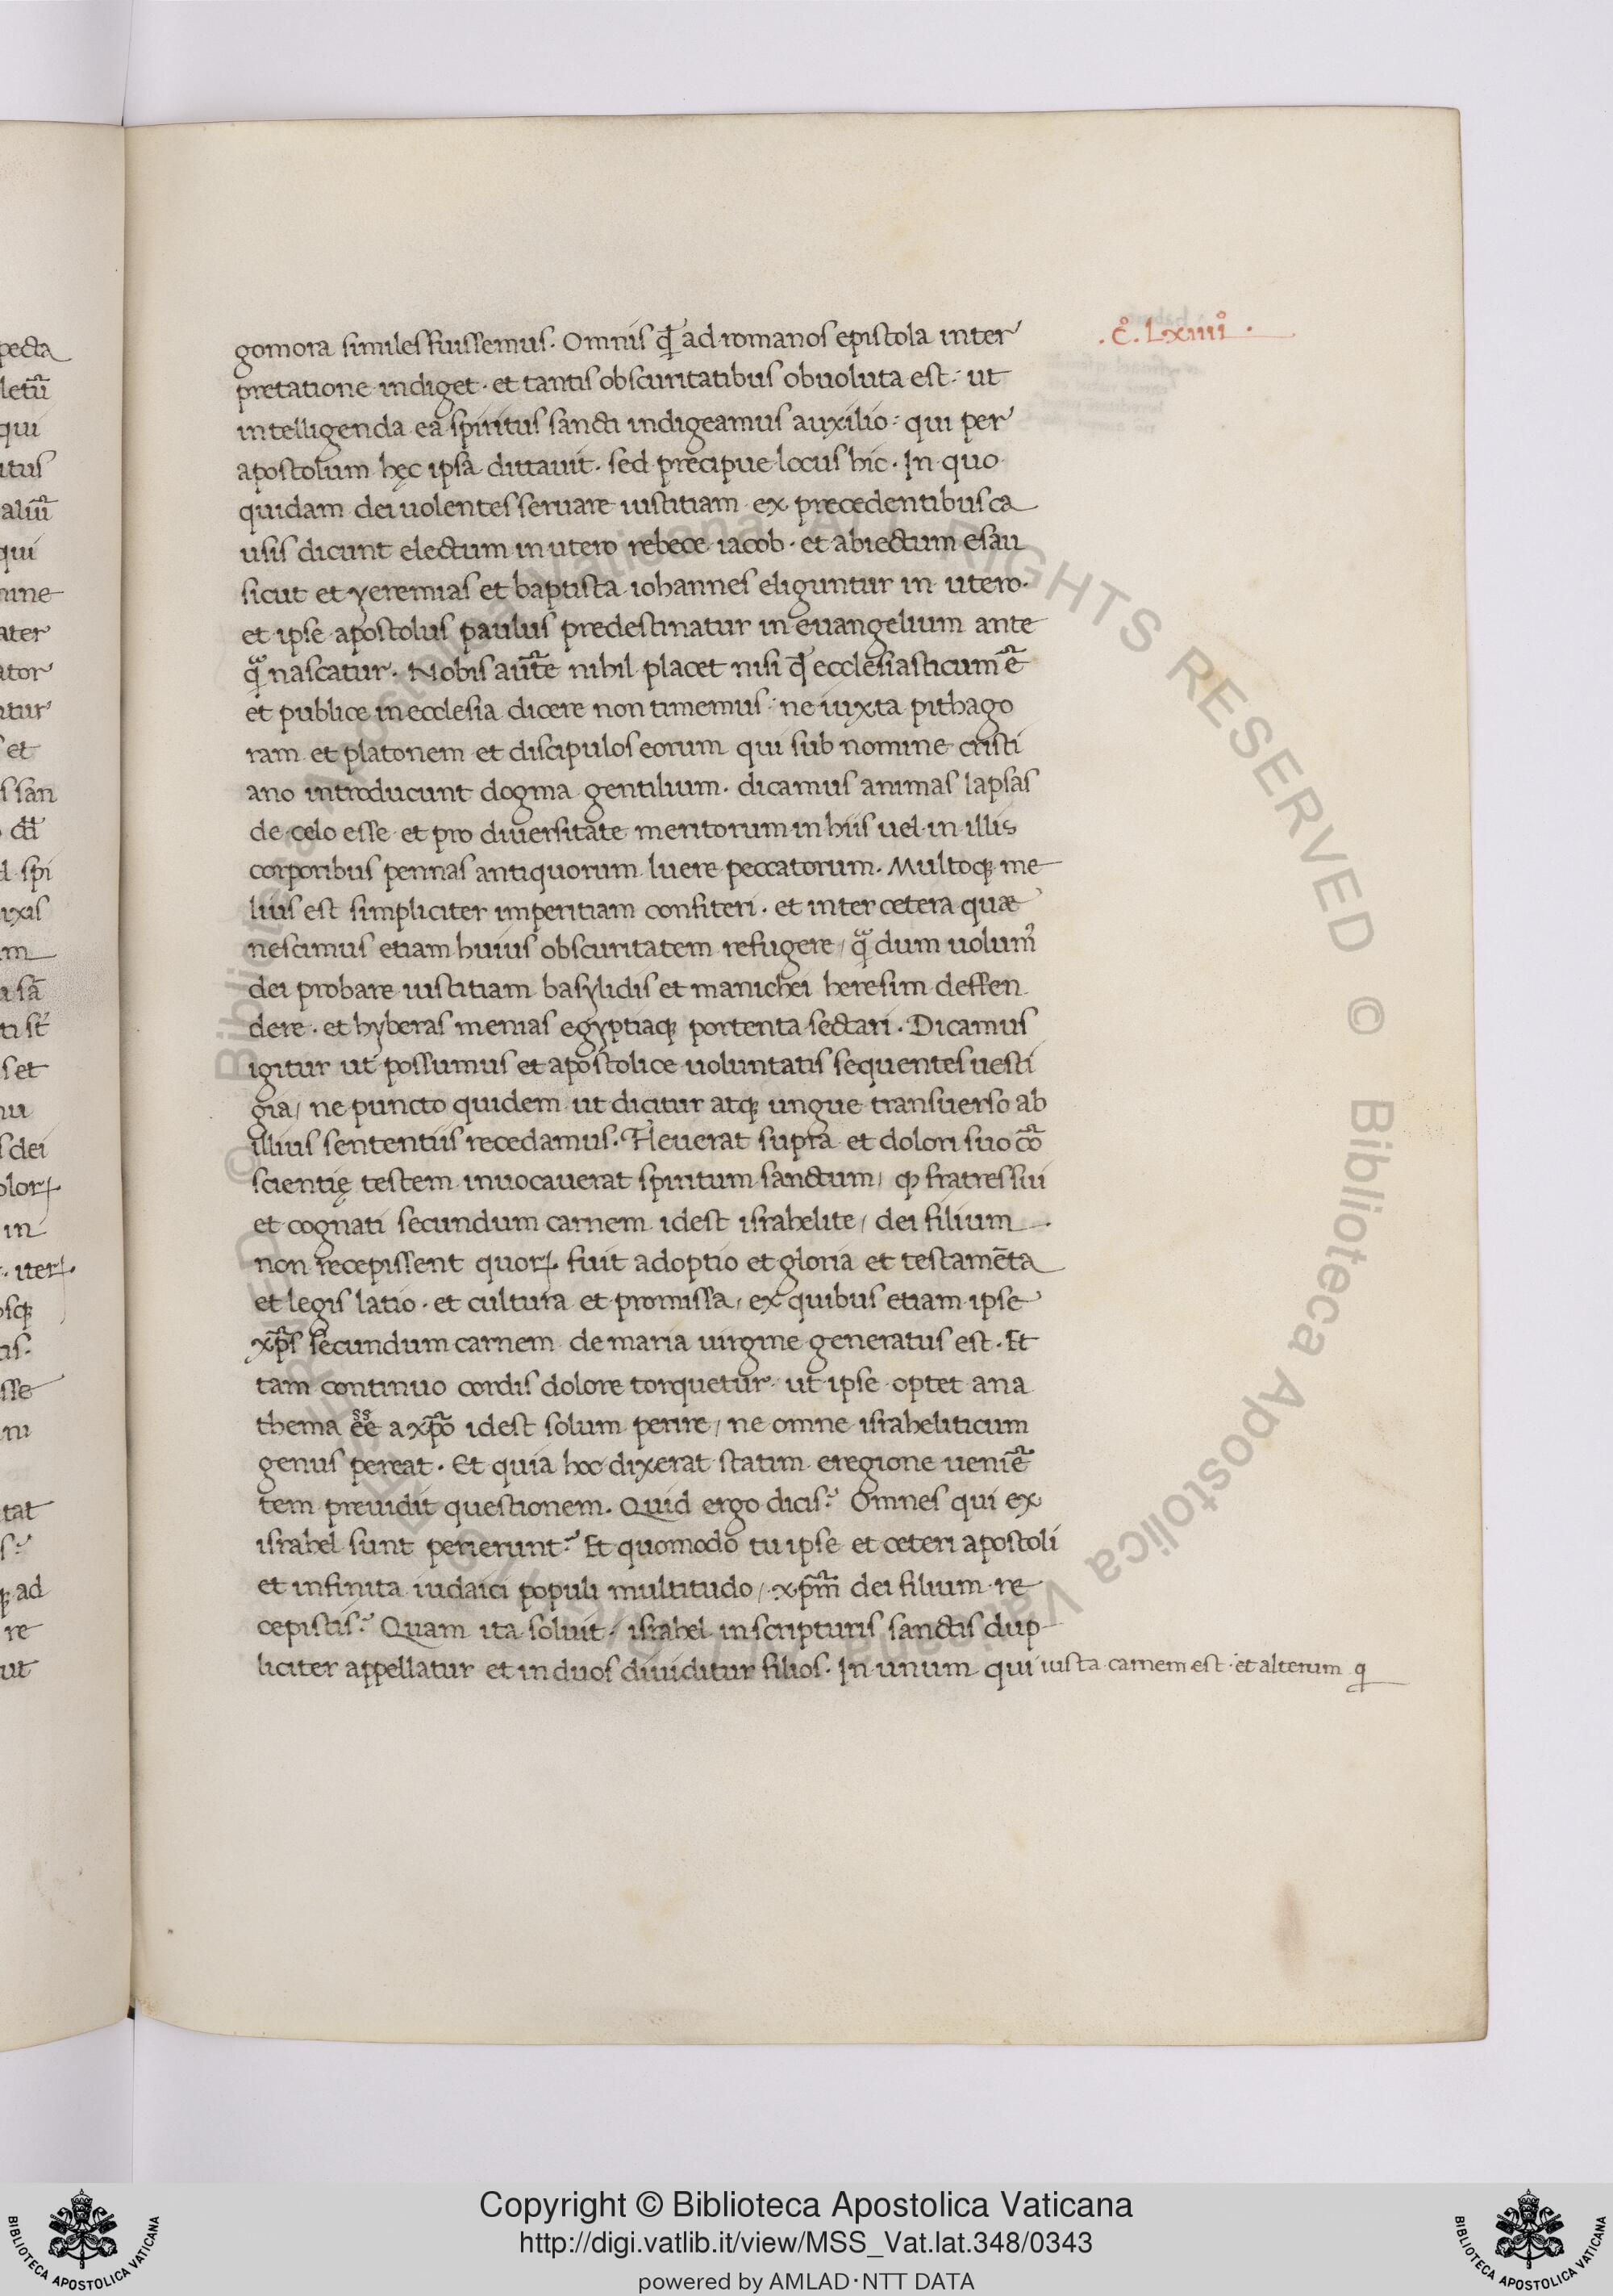 gomora similes fuissemus. Omnis qđ ad romanos epistola inter
.c̊. Lxiiii̊.
pretatione indiget. et tantis obscuritatibus obuoluta est: ut
intelligenda ea spiritus sancti indigeamus auxilio: qui per
apostolum hęc ipsa dittauit. sed precipue locus hic. In quo
quidam dei uolentes seruare iustitiam ex precedentibus ca
usis dicunt electum in utero rebece iacob. et abiectum esau
sicut et yeremias et baptista iohannes eliguntur in utero.
et ipse apostolus paulus predestinatur in euangelium ante
qᷓ nascatur. Nobis aut̃e nihil placet nisi qđ ecclesiasticum ẽ
et publice in ecclesia dicere non timemus: ne iuxta pithago
ram et platonem et discipulos eorum qui sub nomine cristi
ano introducunt dogma gentilium. dicamus animas lapsas
de celo esse et pro diuersitate meritorum in hiis uel in illis
corporibus pennas antiquorum luere peccatorum. Multoqꝫ me
lius est simpliciter imperitiam confiteri. et inter cetera quæ
nescimus etiam huius obscuritatem refugere / qᷓ dum uolum᾽
dei probare iustitiam basylidis et manichei heresim deffen
dere. et hyberas menias egyptiaqꝫ portenta sectari. Dicamus
igitur ut possumus et apostolice uoluntatis sequentes uesti
gia / ne puncto quidem ut dicitur atqꝫ ungue transuerso ab
illius sententiis recedamus. Fleuerat supra et dolori suo cõ
scientię testem inuocauerat spiritum sanctum / ꝙ fratres sui
et cognati secundum carnem idest israhelite / dei filium
non recepissent quorꝝ fuit adoptio et gloria et testamẽta
et legis latio. et cultura et promissa / ex quibus etiam ipse
xp̃s secundum carnem de maria uirgine generatus est. Et
tam continuo cordis dolore torquetur ut ipse optet ana
thema ẽẽ a xp̃o idest solum perire / ne omne israheliticum
genus pereat. Et quia hoc dixerat statim eregione ueniẽ
tem preuidit questionem. Quid ergo dicis? Omnes qui ex
israhel sunt perierunt? Et quomodo tu ipse et ceteri apostoli
et infinita iudaici populi multitudo / xp̃m dei filium re
cepistis? Quam ita soluit. israhel in scripturis sanctis dup
liciter appellatur et in duos diuiditur filios. In unum qui iusta carnem est. et alterum q
Copyright © Biblioteca Apostolica Vaticana
http://digi.vatlib.it/view/MSS_Vat.lat.348/0343
powered by AMLAD · NTT DATA